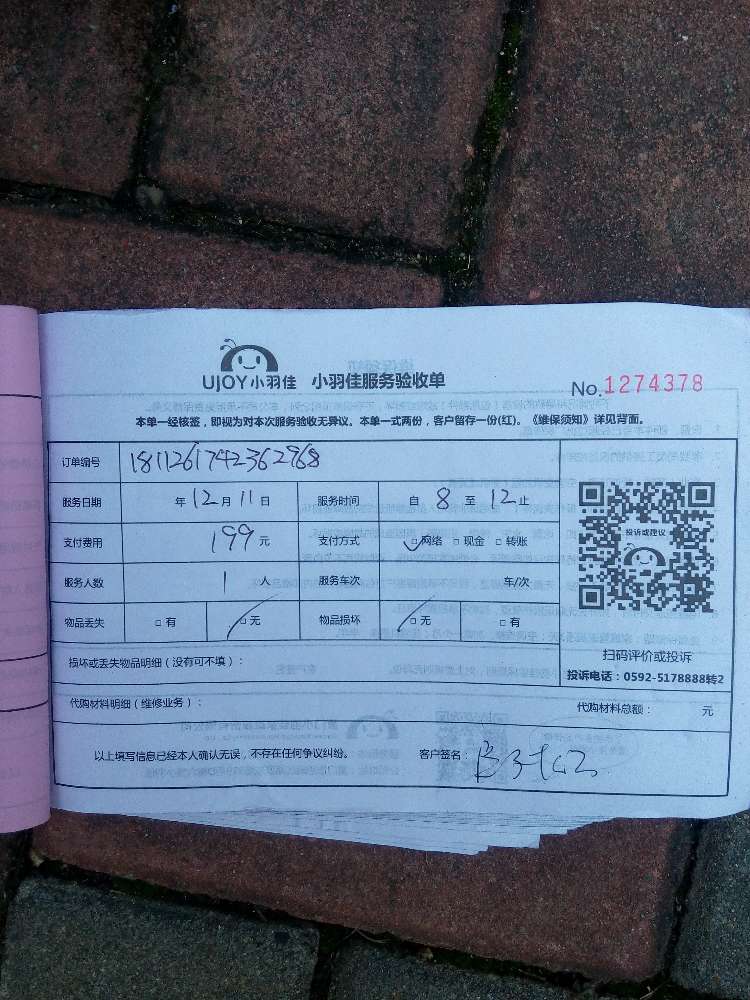 UJOY小羽佳 小羽佳服务验收单 No.1274378
本单一经核签，即视为对本次服务验收无异议。本单一式两份，客户留存一份(红)。《维保须知》详见背面。
订单编号 1811261742362968
服务日期 年12月11日 服务时间 自8至12止
支付费用 199元 支付方式 ☑网络 □现金 □转账
服务人数 1人 服务车次 车/次
物品丢失 □有 ☑无 物品损坏 ☑无 □有
投诉或建议
扫码评价或投诉
投诉电话：0592-5178888转2
损坏或丢失物品明细（没有可不填）：
代购材料明细（维修业务）： 代购材料总额： 元
以上填写信息已经本人确认无误，不存在任何争议纠纷。 客户签名：